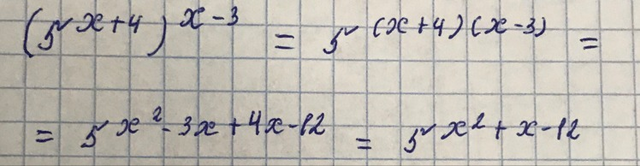 (5^{x+4})^{x-3} = 5^{(x+4)(x-3)} =
= 5^{x^2-3x+4x-12} = 5^{x^2+x-12}